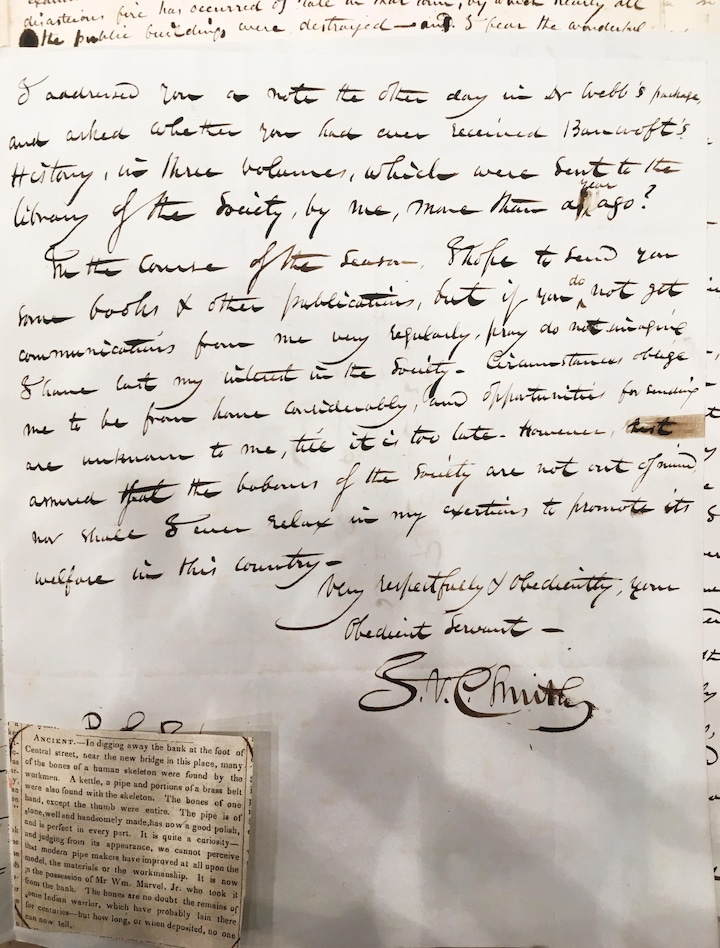 disastrous fire has occurred of late in that town, by which nearly all
the public buildings were destroyed — and I fear the wonderful
I addressed you a note the other day in Dr Webb's package,
and asked whether you had ever received Bancroft's
History, in three volumes, which were sent to the
library of the Society, by me, more than a year ago?
In the course of the season, I hope to send you
some books & other publications, but if you do not get
communications from me very regularly, pray do not imagine
I have lost my interest in the Society. Circumstances oblige
me to be from home considerably, and opportunities for sending
are unknown to me, till it is too late. However, rest
assured that the labours of the Society are not out of mind,
nor shall I ever relax in my exertions to promote its
welfare in this country —
Very respectfully & obediently, your
Obedient Servant —
S. V. C. Smith
ANCIENT.—In digging away the bank at the foot of
Central street, near the new bridge in this place, many
of the bones of a human skeleton were found by the
workmen. A kettle, a pipe and portions of a brass belt
were also found with the skeleton. The bones of one
hand, except the thumb were entire. The pipe is of
stone, well and handsomely made, has now a good polish,
and is perfect in every part. It is quite a curiosity—
and judging from its appearance, we cannot perceive
that modern pipe makers have improved at all upon the
model, the materials or the workmanship. It is now
in the possession of Mr Wm. Marvel, Jr. who took it
from the bank. The bones are no doubt the remains of
some Indian warrior, which have probably lain there
for centuries—but how long, or when deposited, no one
can now tell.